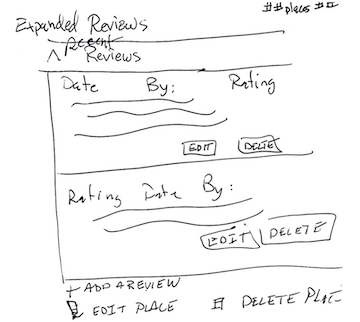 Expanded Reviews
##place #
recent
^ Reviews
Date By: Rating
EDIT DELETE
Rating Date By:
EDIT DELETE
+ ADD A REVIEW
EDIT PLACE DELETE PLACE